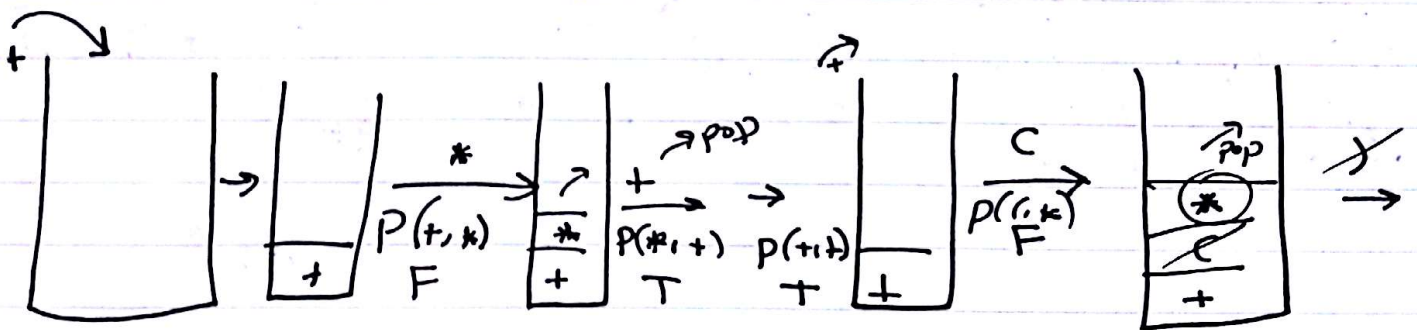 +
+
*
P(+,*)
F
*
+
+
pop
P(*,+)
T
P(+,+)
T
+
+
C
P((,*)
F
pop
*
C
+
)